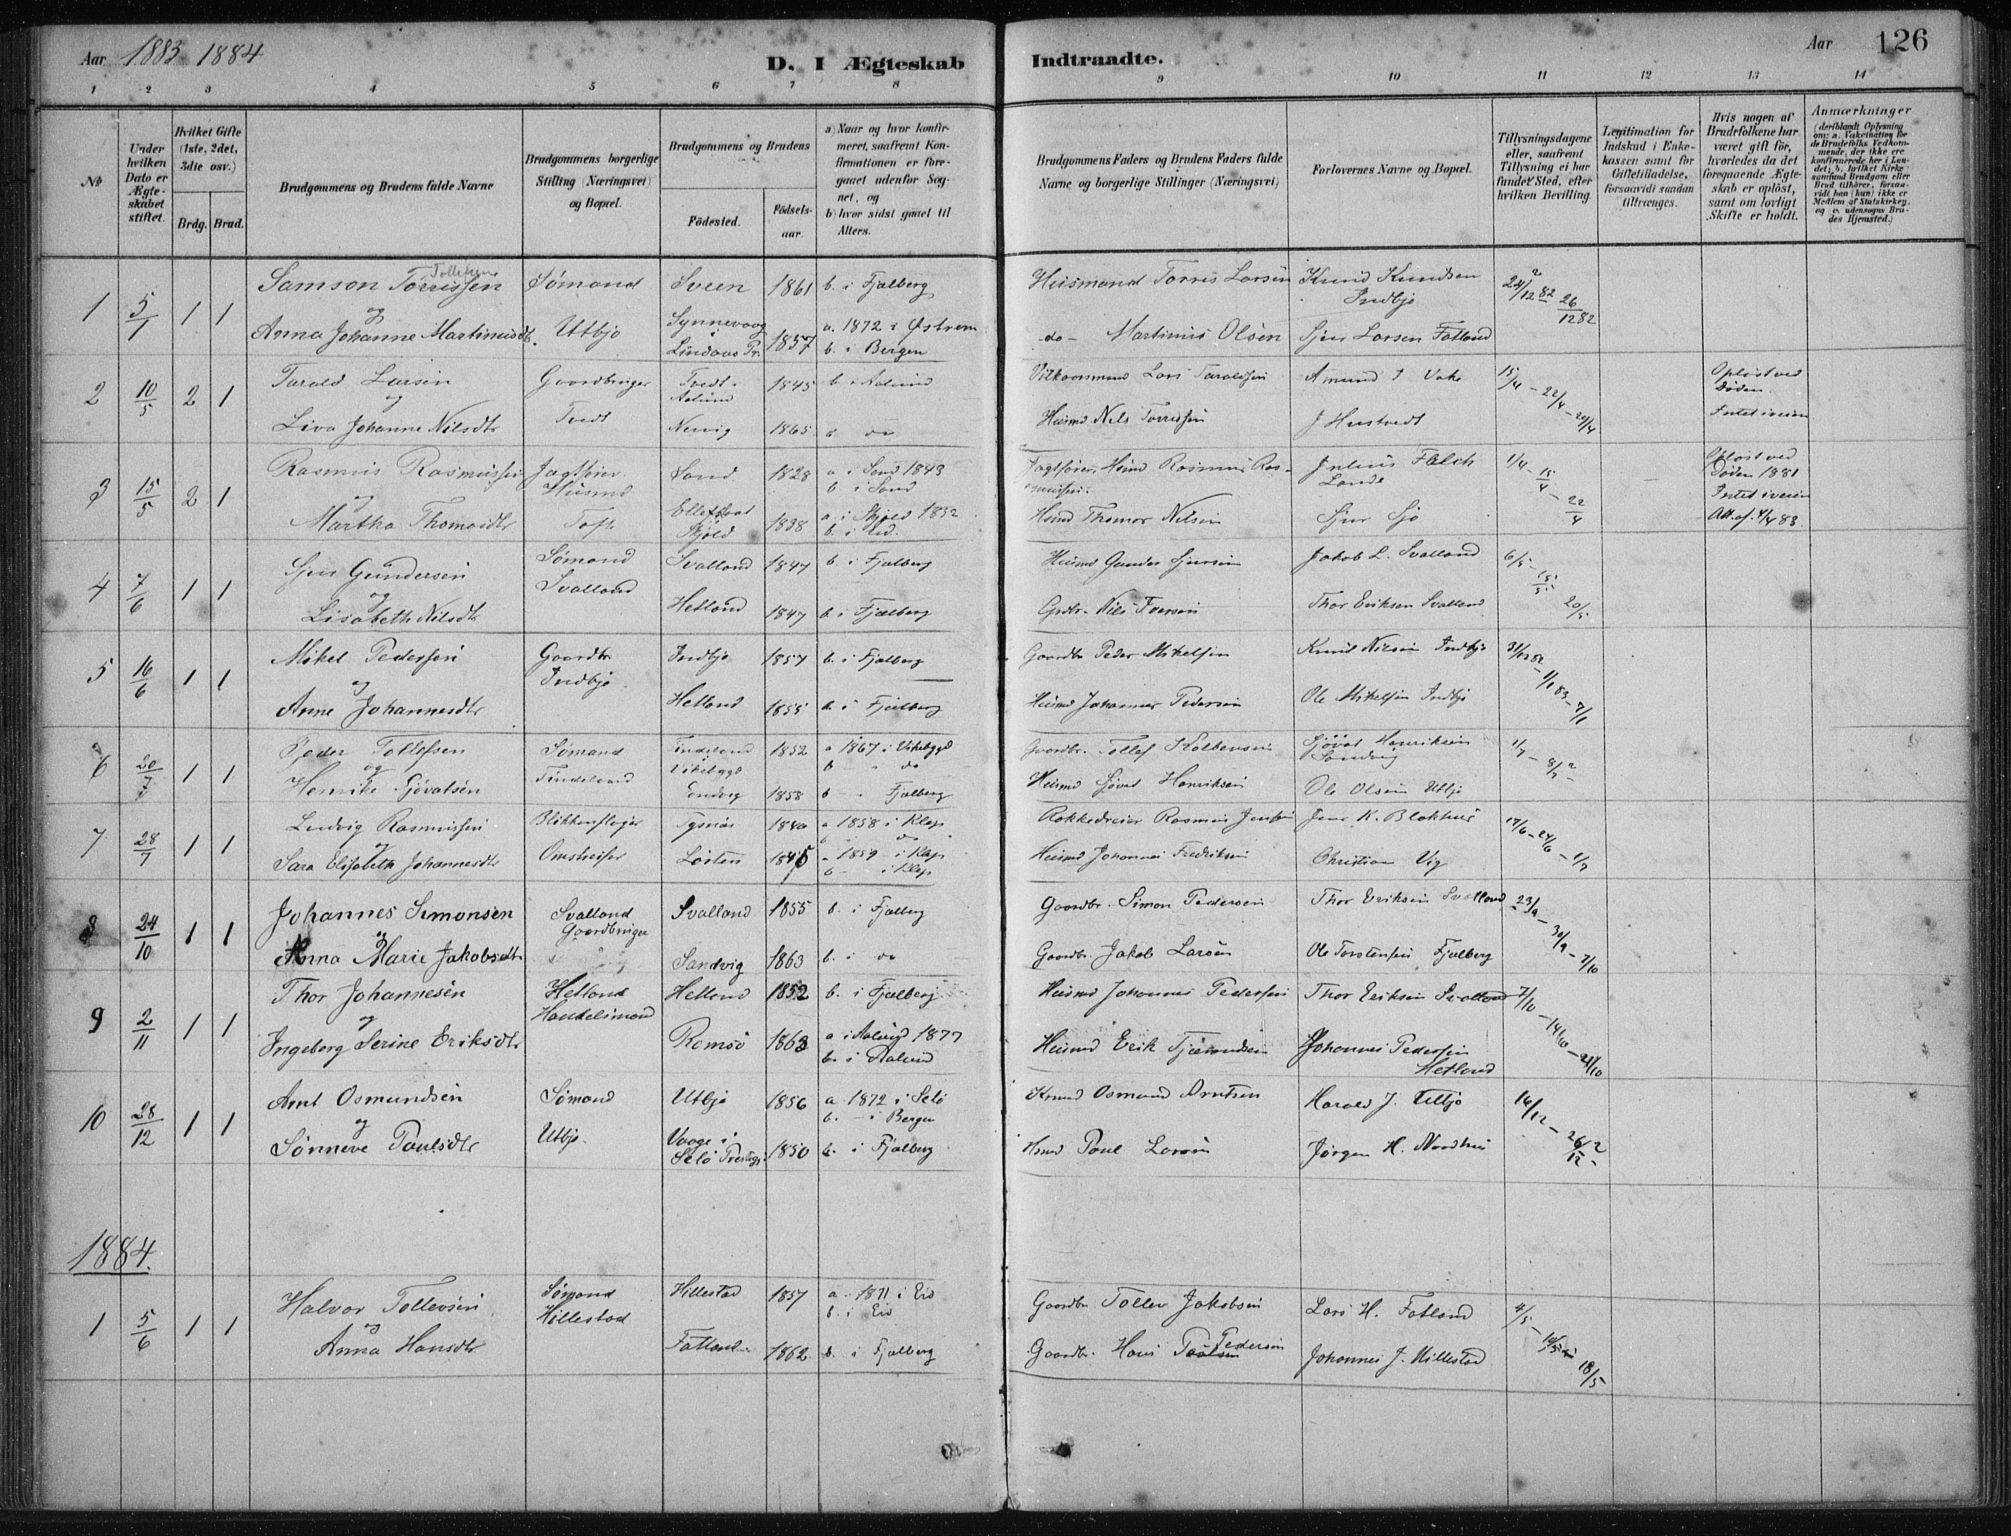 Aar 1883 1884
D. I Ægteskab Indtraadte.
Aar 126
1 2 3 4 5 6 7 8 9 10 11 12 13 14
No
Under hvilken Dato er Ægteskabet stiftet.
Hvilket Gifte (1ste, 2det, 3die osv.)
Brdg. Brud.
Brudgommens og Brudens fulde Navne
Brudgommens borgerlige Stilling (Næringsvei) og Bopæl.
Brudgommens og Brudens
Födested.
Födselsaar.
a) Naar og hvor konfirmeret, saafremt Konfirmationen er foregaaet udenfor Sognet, og
b) hvor sidst gaaet til Alters.
Brudgommens Faders og Brudens Faders fulde Navne og borgerlige Stillinger (Næringsvei)
Forlovernes Navne og Bopæl.
Tillysningsdagene eller, saafremt Tillysning ei har fundet Sted, efter hvilken Bevilling.
Legitimation for Indskud i Enkekassen samt for Giftetilladelse, forsaavidt saadan tiltrænges.
Hvis nogen af Brudefolkene har været gift för, hvorledes da det foregaaende Ægteskab er oplöst, samt om lovligt Skifte er holdt.
Anmærkninger
(deriblandt Oplysning om: a. Vakcination for de Brudefolks Vedkommende, der ikke ere konfirmerede her i Landet; b. hvilket Kirkesamfund Brudgom eller Brud tilhörer, forsaavidt han (hun) ikke er Medlem af Statskirken, og c. udensogns Brudes Hjemsted.)
1 5/1 1 1 Samson Torrissen Tollefsen Sømand Sveen 1861 b. i Fjælberg Husmand Torris Larsen Knud Knudsen Indbjo 24/12 82 26/12 82
og
Anna Johanne Martinusdt. Utbjo Synnevaag i Lindaas Pr. 1857 a. 1872 i Østrem b. i Bergen do - Martinus Olsen Sjur Larsen Fatland
2 10/5 2 1 Tarald Larsen Gaardbruger Tvedt Aalund 1845 b i Aalund Vilkaarsmand Lars Taraldsen Amund J Vake 15/4 - 22/4 - 29/4 Opløst ved Døden.
og
Liva Johanne Nilsdtr Tvedt Nervig 1865 b do Husmd Nils Torrissen J Hustvedt Intet iveien
3 15/5 2 1 Rasmus Rasmussen Jagtfører Husmd Sand 1828 a i Sand 1843 b i Sand Jagtfører, Hsmd Rasmus Rasmussen. Julius Falch Lande 1/4 - 15/4 - 22/4 Opløst ved Døden 1881
og
Martha Thomasdtr Toft Skjold 1838 a. i Skjold 1852 Hsmd Thomas Nilsen Sjur Sjo Intet iveien Att. af. 4/4 83
4 7/6 1 1 Sjur Gundersen Sømand Svalland Svalland 1847 b. i Fjælberg Husmd Gunder Sjursen Jakob L. Svalland 6/5 - 15/5 - 20/5
og
Lisabeth Nilsdtr Hetland 1847 b. i Fjælberg Grdbr. Nils Iversen Thor Eriksen Svalland
5 16/6 1 1 Mikel Pedersen Gaardbr Indbjo Indbjo 1857 b. i Fjælberg Gaardbr Peder Mikelsen Knud Nilsen Indbjo 31/12 82 - 1/1 83 - 7/1
og
Anne Johannesdtr Hetland 1855 b. i Fjælberg Husmd Johannes Pedersen Ole Mikelsen Indbjo
6 20/7 1 1 Peder Tollefsen Sømand Tindeland Vikebygd 1852 a 1867 i Vikebygd b " do Gaardbr. Tollef Kolbensen Sjövat Henriksen Sandvig 1/7 - 8/7
og
Henrike Sjövatsen Tindeland Sandvig 1858 b - Fjælberg Husmd Sjövat Henriksen Ole Olsen Utbjo
7 28/7 1 1 Ludvig Rasmussen Blikkenslager Tysnæs 1840 a 1858 i Klep b do Rokkedreier Rasmus Jensen Jens K. Blokhus 17/6 - 24/6 - 1/7
og
Sara Elisabeth Johannesdtr Omstreifer 1845 a 1859 i Klep b - i Klep Husmd Johannes Fredriksen Christian Vig
8 24/10 1 1 Johannes Simonsen Svalland Gaardbruger Svalland 1855 b. i Fjælberg Gaardbr. Simon Pedersen Thor Eriksen Svalland 23/9 - 30/9 - 7/10
og
Anna Marie Jakobsdtr Sandvig 1863 b. i do Gaardbr. Jakob Larsen Ole Torstensen Fjælberg
9 2/11 1 1 Thor Johannesen Hetland Handelsmand Hetland 1852 b. i Fjælberg Husmd Johannes Pedersen Thor Eriksen Svalland 7/10 - 14/10 - 21/10
og
Ingeborg Serine Eriksdtr Romsö 1863 a i Aalund 1877 b. i Aalund Husmd Erik Tjærandsen Johannes Pedersen Hetland
10 28/12 1 1 Arnt Osmundsen Sømand Utbjo 1856 a 1872 i Selö b. - i Bergen Osmund Arntsen Harald J. Utbjo 16/12 - 26/12
og
Sönneve Paulsdtr Utbjo. Vaage i Selö Prestegj. 1850 b. i Fjælberg Hsmd Paul Larsen Jørgen H. Nordhus
1884.
1 5/6 1 1 Halvor Tollevsen Sømand Hillestad Hillestad 1857 a - 1871 i Eid b. i Eid Gaardbr Tollev Jakobsen Lars H. Fatland 4/5 - 12/5 - 18/5
og
Anna Hansdtr Fatland 1862 b. i Fjælberg Gaardbr. Hans Pedersen Johannes J. Hillestad